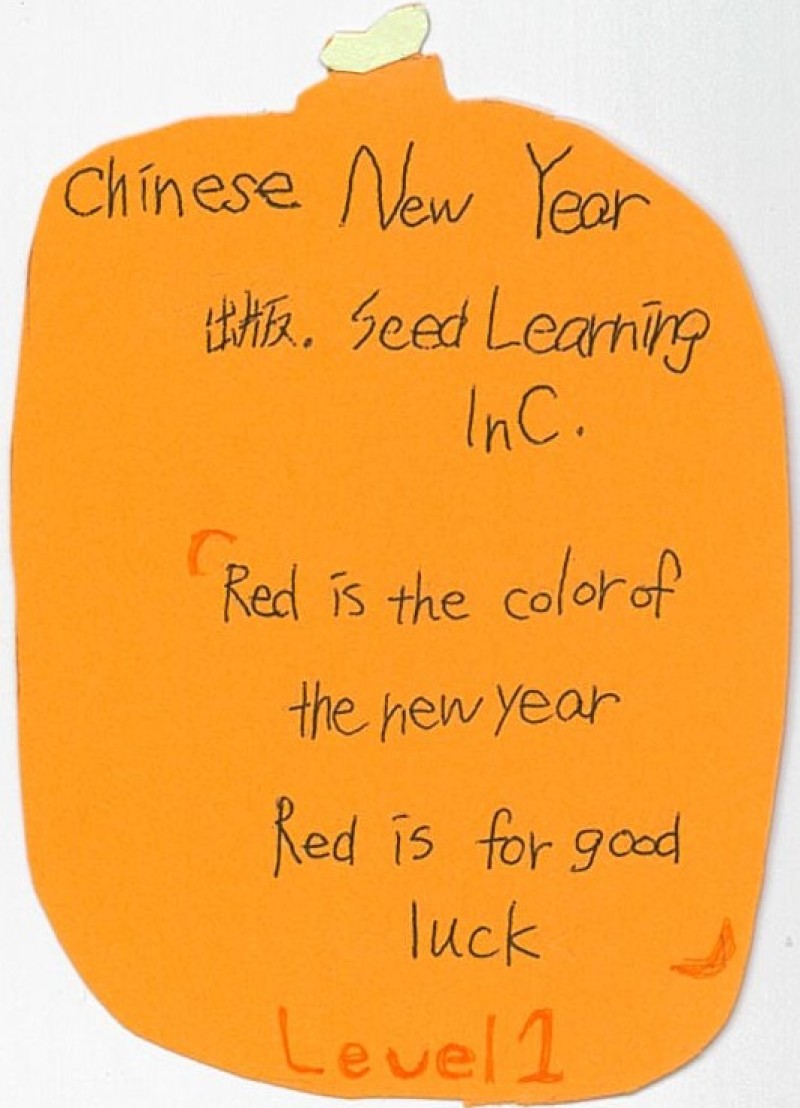 Chinese New Year
出版. Seed Learning
InC.
「Red is the color of
the new year
Red is for good
luck」
Level 1